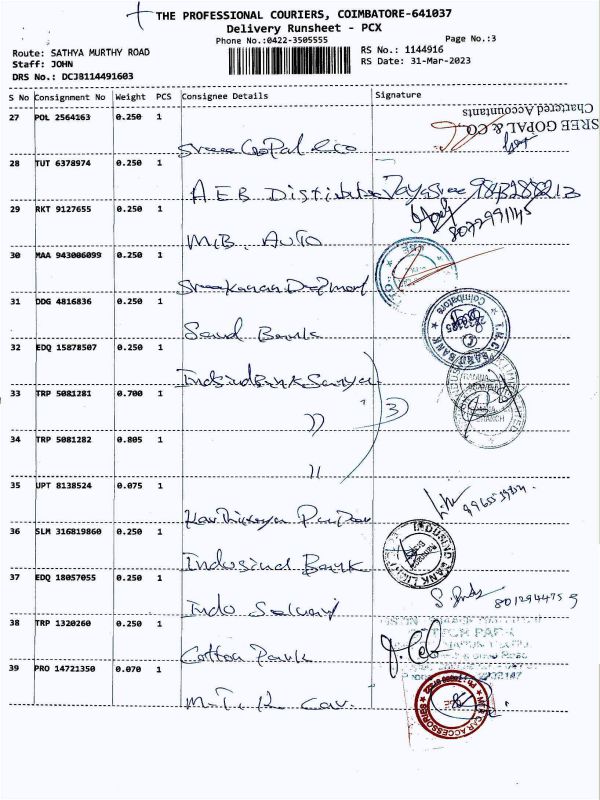 THE PROFESSIONAL COURIERS, COIMBATORE-641037
Delivery Runsheet - PCX
Phone No.:0422-3505555
Page No.:3
Route: SATHYA MURTHY ROAD
Staff: JOHN
DRS No.: DCJB114491603
RS No.: 1144916
RS Date: 31-Mar-2023
S No Consignment No Weight PCS Consignee Details Signature
27 POL 2564163 0.250 1 Sree Gopal & co
SREE GOPAL & CO.
Chartered Accountants
28 TUT 6378974 0.250 1 A.E.B
29 RKT 9127655 0.250 1 M.B. AUTO
30 MAA 943006099 0.250 1
31 DDG 4816836 0.250 1 Sand Bank
Coimbatore
32 EDQ 15878507 0.250 1 IndusindBank
33 TRP 5081281 0.700 1 )) 3
34 TRP 5081282 0.805 1 ))
35 UPT 8138524 0.075 1
36 SLM 316819860 0.250 1 Indusind Bank
INDUSIND BANK
37 EDQ 18057055 0.250 1 Indo
38 TRP 1320260 0.250 1 Cotton Park
39 PRO 14721350 0.070 1 M.T.K Car
CAR ACCESSORIES